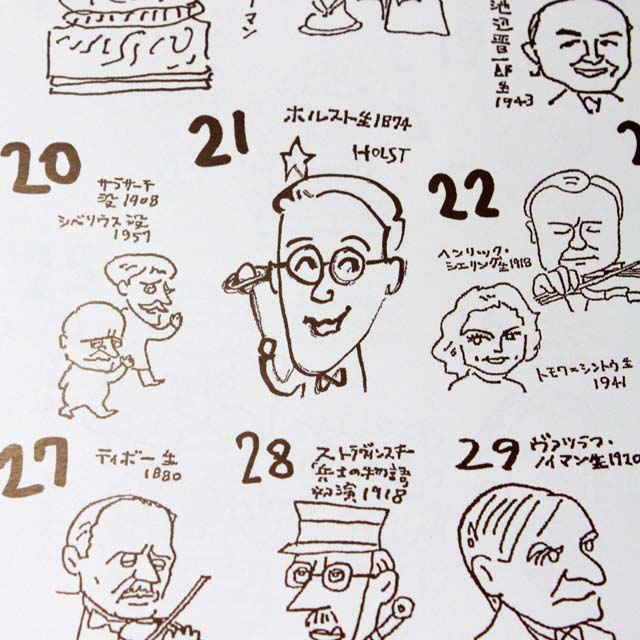 ーマン
池辺晋一郎生
1943
20
サラサーテ
没1908
シベリウス没
1957
21
ホルスト生1874
HOLST
22
ヘンリック・
シェリング生1918
トモワ=シントウ生
1941
27
ティボー生
1880
28
ストラヴィンスキー
兵士の物語
初演1918
29
ヴァツラフ・
ノイマン生1920